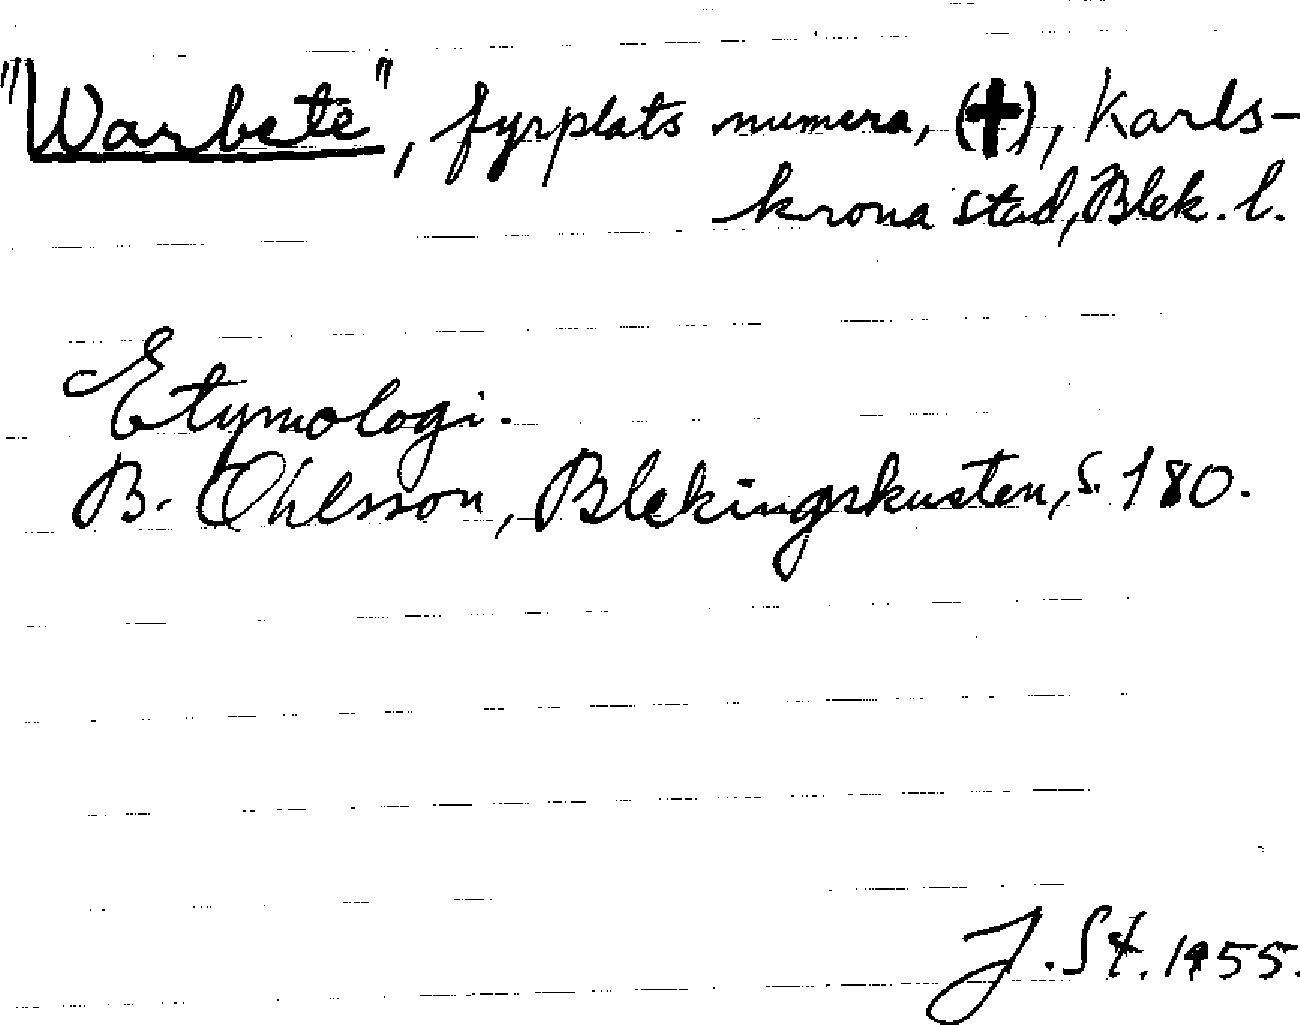 "Warbete", fyrplats numera, (✝), Karls-
krona stad, Blek. l.
Etymologi.
B. Ohlsson, Blekingskusten, s. 180.
J. St. 1955.